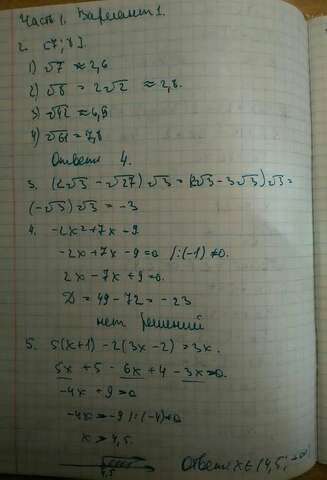 Часть 1. Вариант 1.
2. [7; 8].
1) √7 ≈ 2,6
2) √8 = 2√2 ≈ 2,8.
3) √42 ≈ 6,5
4) √61 = 7,8
Ответ: 4.
3. (2√3 - √27)√3 = (2√3 - 3√3)√3 =
(-√3)√3 = -3
4. -2x²+7x-9
-2x+7x-9=0 /:(-1)≠0.
2x-7x+9=0.
D = 49-72 = -23
нет решений
5. 5(x+1)-2(3x-2)=3x.
5x+5-6x+4-3x>0.
-4x+9>0
-4x>-9 /:(-4)≠0
x>4,5.
4,5
Ответ: x∈(4,5; +∞)